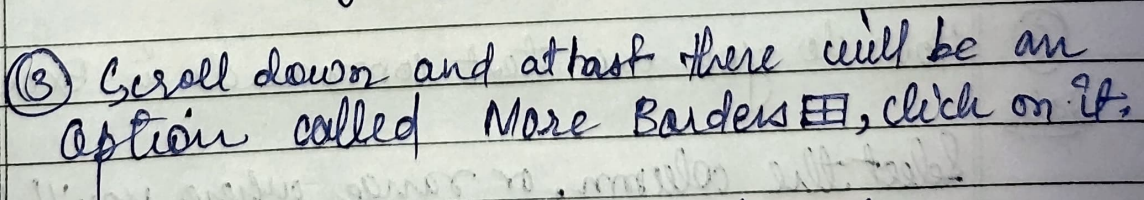 (3) Scroll down and at last there will be an
option called More Borders ⊞, click on it,